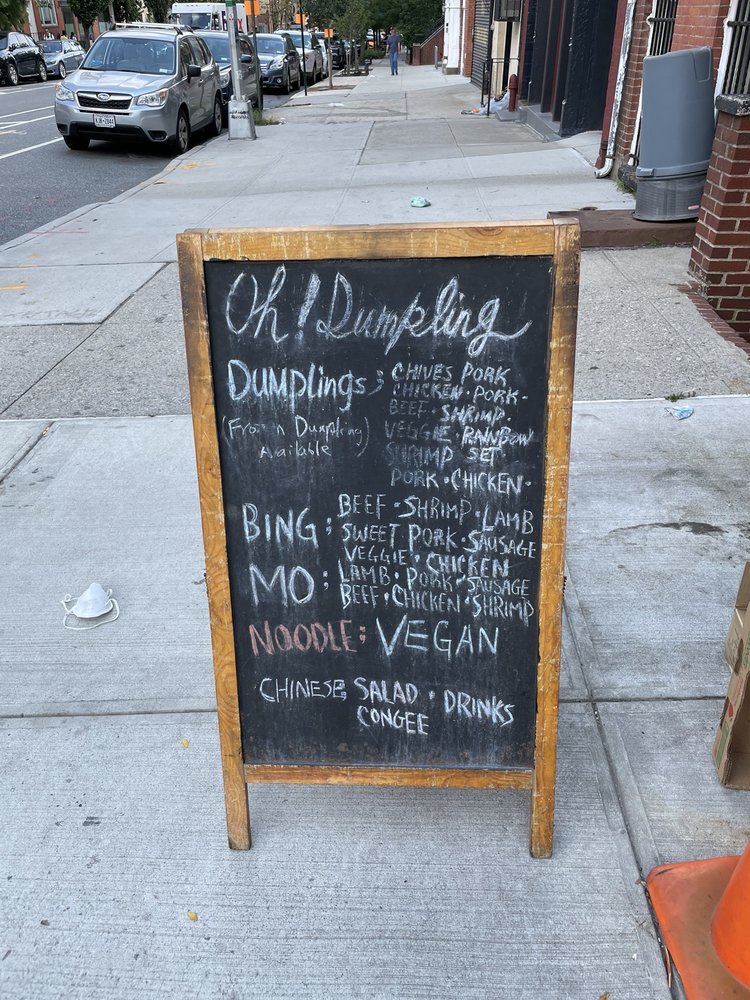 Oh! Dumpling
Dumplings; CHIVES PORK
CHICKEN · PORK ·
BEEF · SHRIMP ·
(Frozen Dumpling) VEGGIE · RAINBOW
Available SHRIMP SET
PORK · CHICKEN ·
BING; BEEF · SHRIMP · LAMB
SWEET PORK · SAUSAGE
VEGGIE · CHICKEN
MO; LAMB · PORK · SAUSAGE
BEEF · CHICKEN · SHRIMP
NOODLE; VEGAN
CHINESE; SALAD · DRINKS
CONGEE